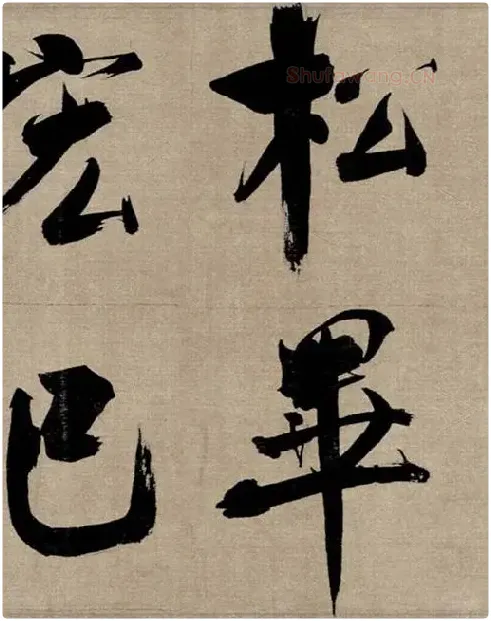 松畢
宏已
Shufawang.CN